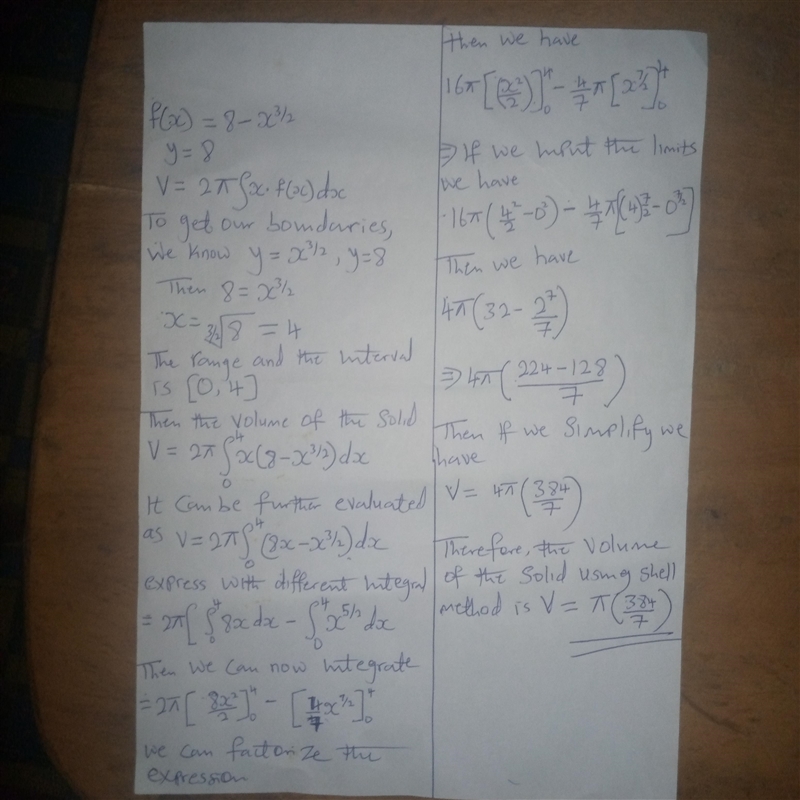 f(x) = 8 - x^3/2
y = 8
V = 2π∫x·f(x)dx
To get our boundaries,
We know y = x^3/2, y = 8
Then 8 = x^3/2
x = ^3/2√8 = 4
The range and the interval
is [0, 4]
Then the volume of the solid
V = 2π∫₀⁴x(8-x^3/2)dx
It can be further evaluated
as V = 2π∫₀⁴(8x-x^3/2)dx
express with different integral
= 2π[∫₀⁴8x dx - ∫₀⁴x^5/2 dx
Then we can now integrate
= 2π[8x²/2]₀⁴ - [4/7 x^7/2]₀⁴
we can factorize the
expression
then we have
16π[(x²/2)]₀⁴ - 4/7 π[x^7/2]₀⁴
⇒ If we input the limits
we have
16π(4²/2 - 0²) - 4/7 π[(4)^7/2 - 0^7/2]
Then we have
4π(32 - 2^7/7)
⇒ 4π((224-128)/7)
Then if we simplify we
have
V = 4π(384/7)
Therefore, the volume
of the solid using shell
method is V = π(384/7)